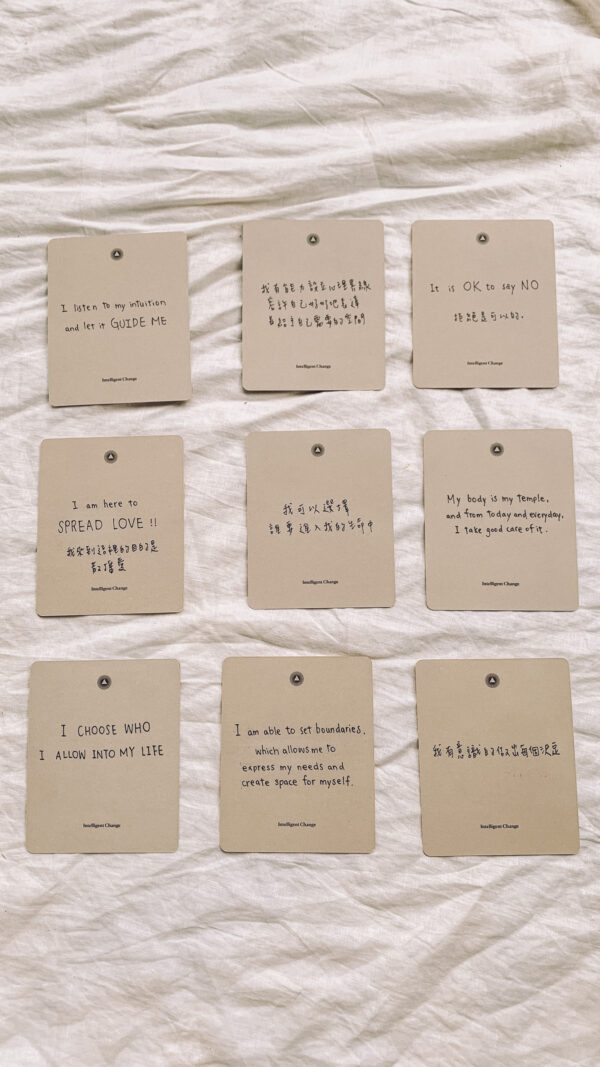 I listen to my intuition
and let it GUIDE ME
Intelligent Change
我有能力設立心理界線
容許自己好好地表達
並給予自己需要的空間
Intelligent Change
It is OK to say NO
拒絕是可以的.
Intelligent Change
I am here to
SPREAD LOVE !!
我來到這裡的目的是
散播愛
Intelligent Change
我可以選擇
誰要進入我的生命中
Intelligent Change
My body is my temple,
and from today and everyday,
I take good care of it.
Intelligent Change
I CHOOSE WHO
I ALLOW INTO MY LIFE
Intelligent Change
I am able to set boundaries,
which allows me to
express my needs and
create space for myself.
Intelligent Change
我有意識的做出每個決定
Intelligent Change